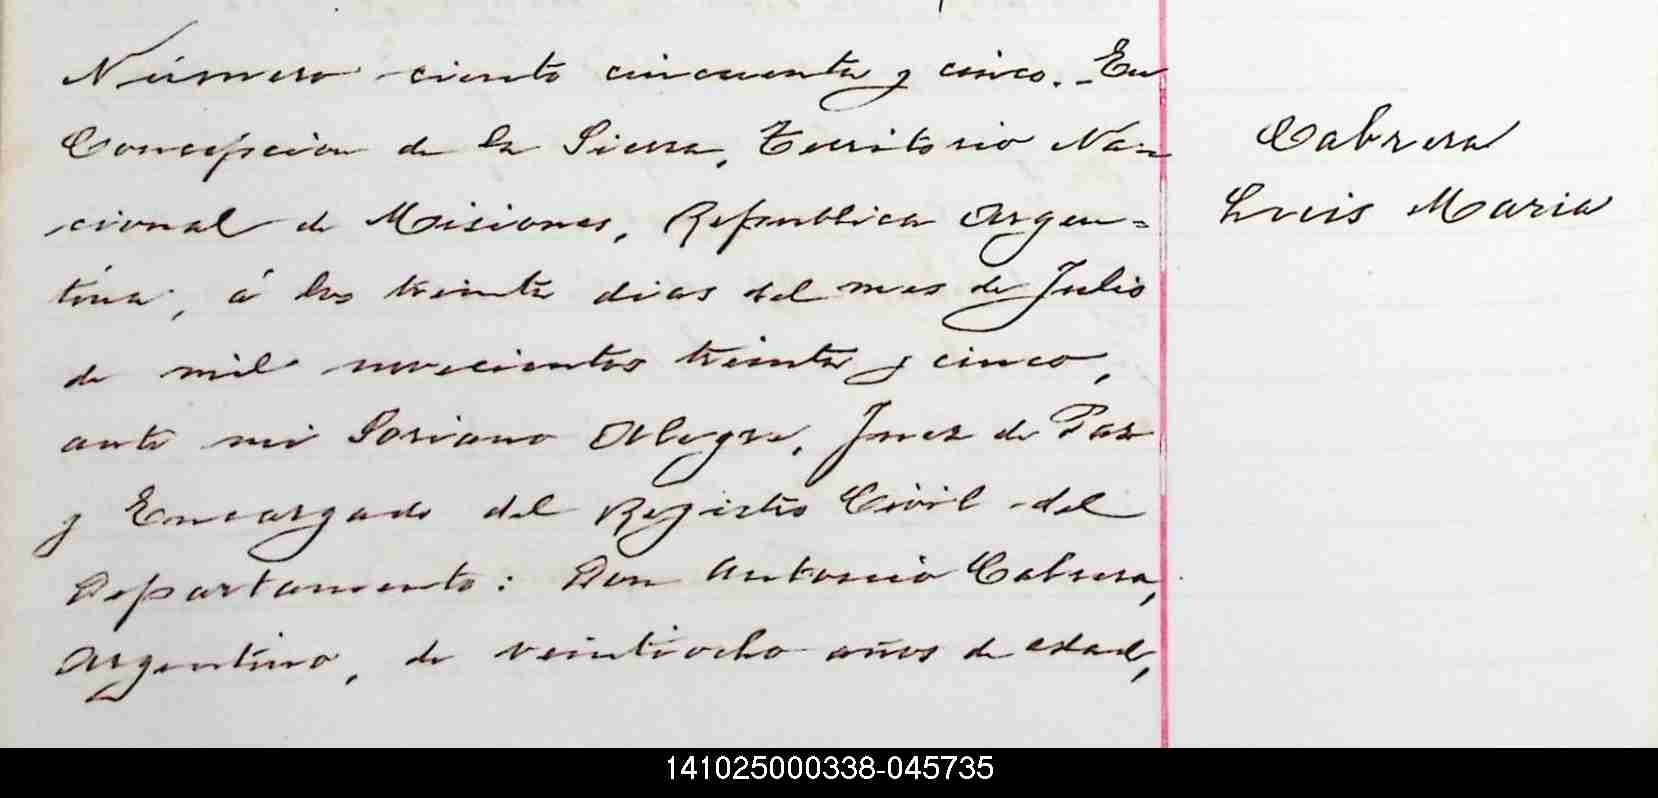 Número ciento cincuenta y cinco. - En
Concepcion de la Sierra, Territorio Na=
cional de Misiones, Republica Argen=
tina, á los treinta dias del mes de Julio
de mil novecientos treinta y cinco,
ante mi Soriano Alegre, Juez de Paz
y Encargado del Registro Civil del
Departamento: Don Antonio Cabrera,
Argentino, de veintiocho años de edad,
Cabrera
Luis Maria
141025000338-045735